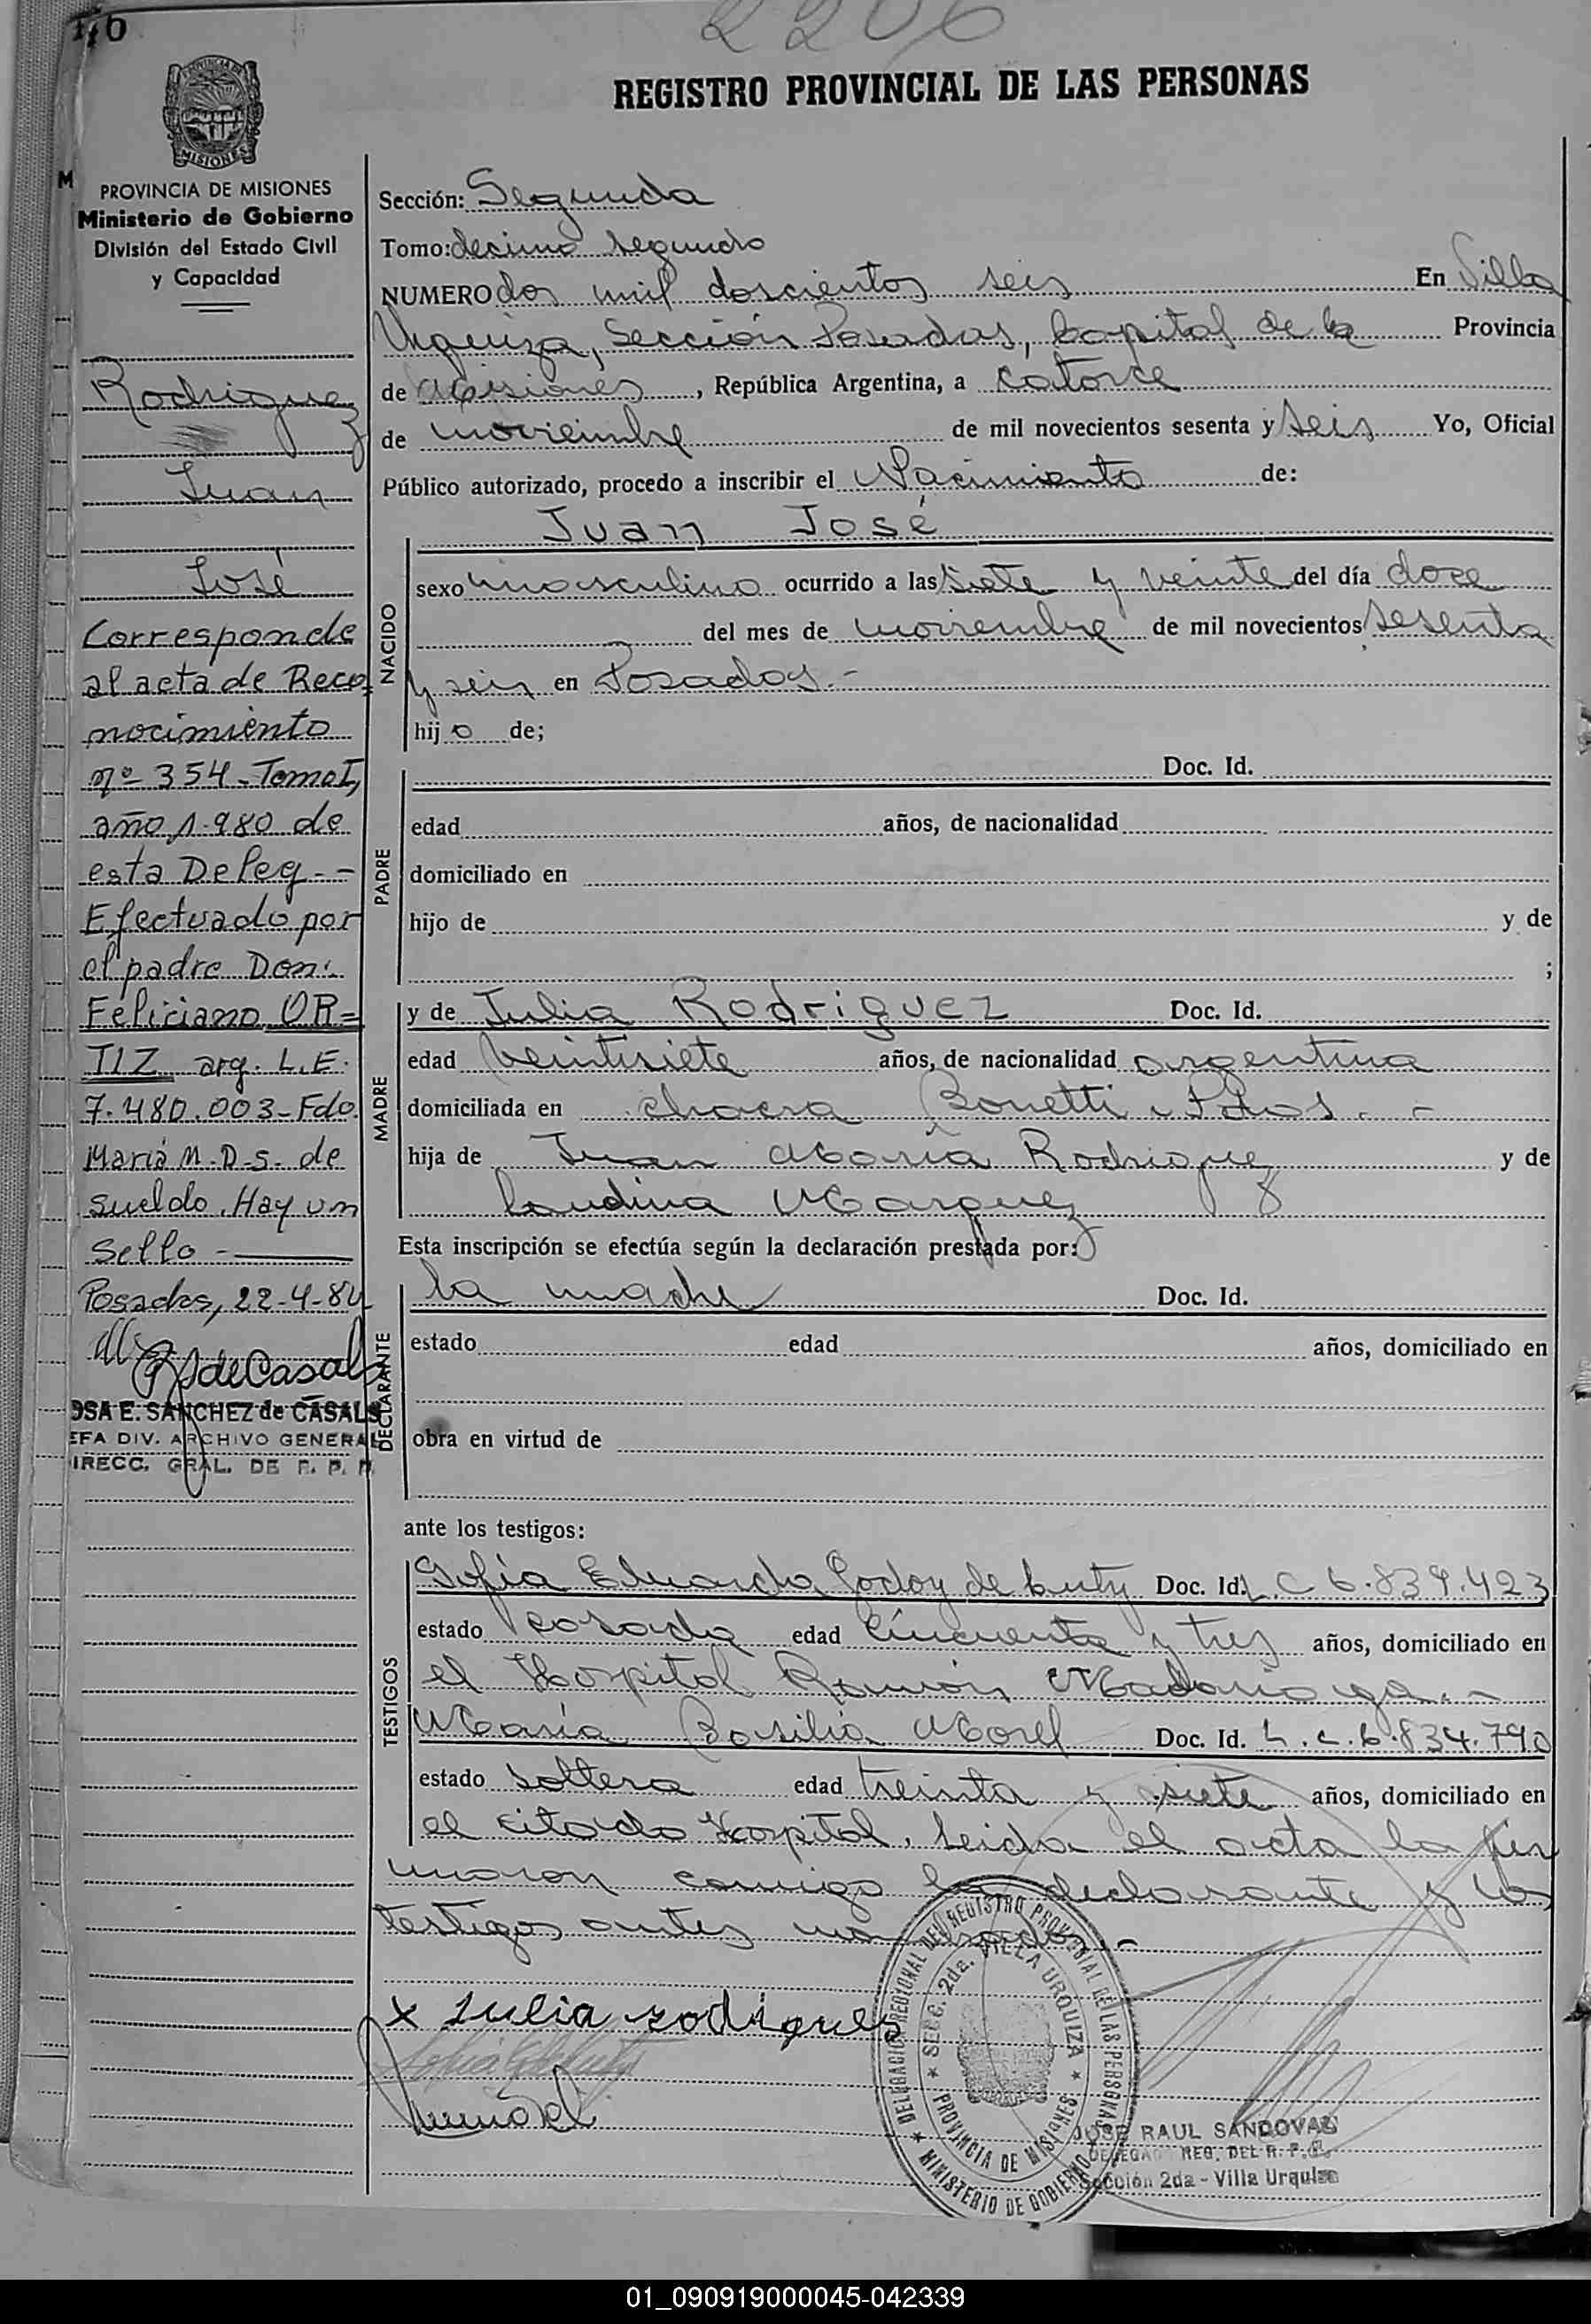 2206
REGISTRO PROVINCIAL DE LAS PERSONAS
MISIONES
PROVINCIA DE MISIONES
Ministerio de Gobierno
División del Estado Civil
y Capacidad
Rodriguez
Juan
José
Corresponde
al acta de Reco
nocimiento
nº 354 - Tomo I,
año 1.980 de
esta Deleg. -
Efectuado por
el padre Don:
Feliciano OR=
TIZ arg. L.E.
7.480.003 - Fdo.
María M.D.S. de
Sueldo. Hay un
Sello -
Posadas, 22-4-84
OSA E. SANCHEZ de CASALS
EFA DIV. ARCHIVO GENERAL
IRECC. GRAL. DE R. P. P.
Sección: Segunda
Tomo: decimo segundo
NUMERO dos mil doscientos seis En Villa
Urquiza, Sección Posadas, Capital de la Provincia
de Misiones, República Argentina, a catorce
de noviembre de mil novecientos sesenta y seis Yo, Oficial
Público autorizado, procedo a inscribir el Nacimiento de:
Juan José
NACIDO
sexo masculino ocurrido a las siete y veinte del día doce
del mes de noviembre de mil novecientos sesenta
y seis en Posadas.-
hijo de;
PADRE
Doc. Id.
edad años, de nacionalidad
domiciliado en
hijo de y de
;
MADRE
y de Julia Rodriguez Doc. Id.
edad veintisiete años, de nacionalidad argentina
domiciliada en chacra Bonetti -
hija de Juan María Rodriguez y de
Marquez
Esta inscripción se efectúa según la declaración prestada por:
DECLARANTE
la madre Doc. Id.
estado edad años, domiciliado en
obra en virtud de
ante los testigos:
TESTIGOS
Sofía Eduarda Godoy de Doc. Id. L.C 6.839.423
estado casada edad cincuenta y tres años, domiciliado en
el Hospital Ramón Madariaga.-
María Basilia Morel Doc. Id. L.C. 6.834.790
estado soltera edad treinta y siete años, domiciliado en
el citado Hospital. Leída el acta la fir
maron conmigo la declarante y los
testigos antes
x Julia rodigues
DELEGACION REGIONAL DEL REGISTRO PROVINCIAL DE LAS PERSONAS
SECC. 2da. VILLA URQUIZA
PROVINCIA DE MISIONES
MINISTERIO DE GOBIERNO
JOSE RAUL SANDOVAL
DELEGADO REG. DEL R. P. P.
Sección 2da - Villa Urquiza
01_090919000045-042339